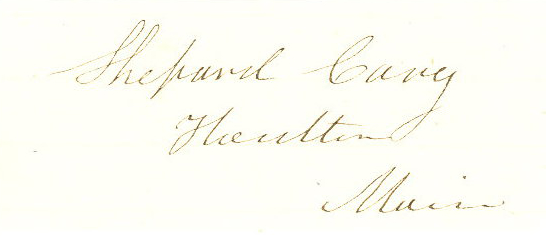 Shepard Cary
Houlton
Maine